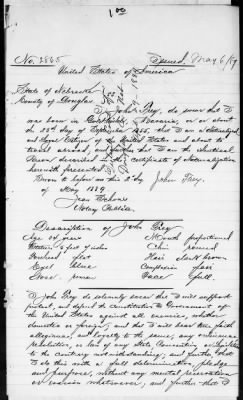 1 00
No. 2865 Issued May 6/89
United States of America
State of Nebraska
County of Douglas
I John Frey, do swear that I
was born in Bavaria, or or about
the 23rd day of September 1855, that I am a Naturalized
and Loyal Citizen of the United States and about to
travel abroad, and further that I am the identical
Person described in the certificate of Naturalization
herewith presented
Sworn to before me this 2 day John Frey.
of May 1889
Jean Schons
Notary Public.
Description of John Frey
Age 34 years Mouth proportioned
Stature 6 feet inches Chin round
Forehead flat Hair dark brown
Eyes blue Complexion fair
Nose roman Face full
I John Frey do solemnly swear that I will support
protect and defend the Constitution & Government of
the United States against all enemies, whether
domestic or foreign, and that I will bear true faith
allegiance, and loyalty to the same, any ordinance,
resolution, or law of any State Convention or Legislature
to the contrary notwithstanding; and further that
I do this with a full determination, pledge
and purpose, without any mental reservation
or evasion whatsoever, and further that I